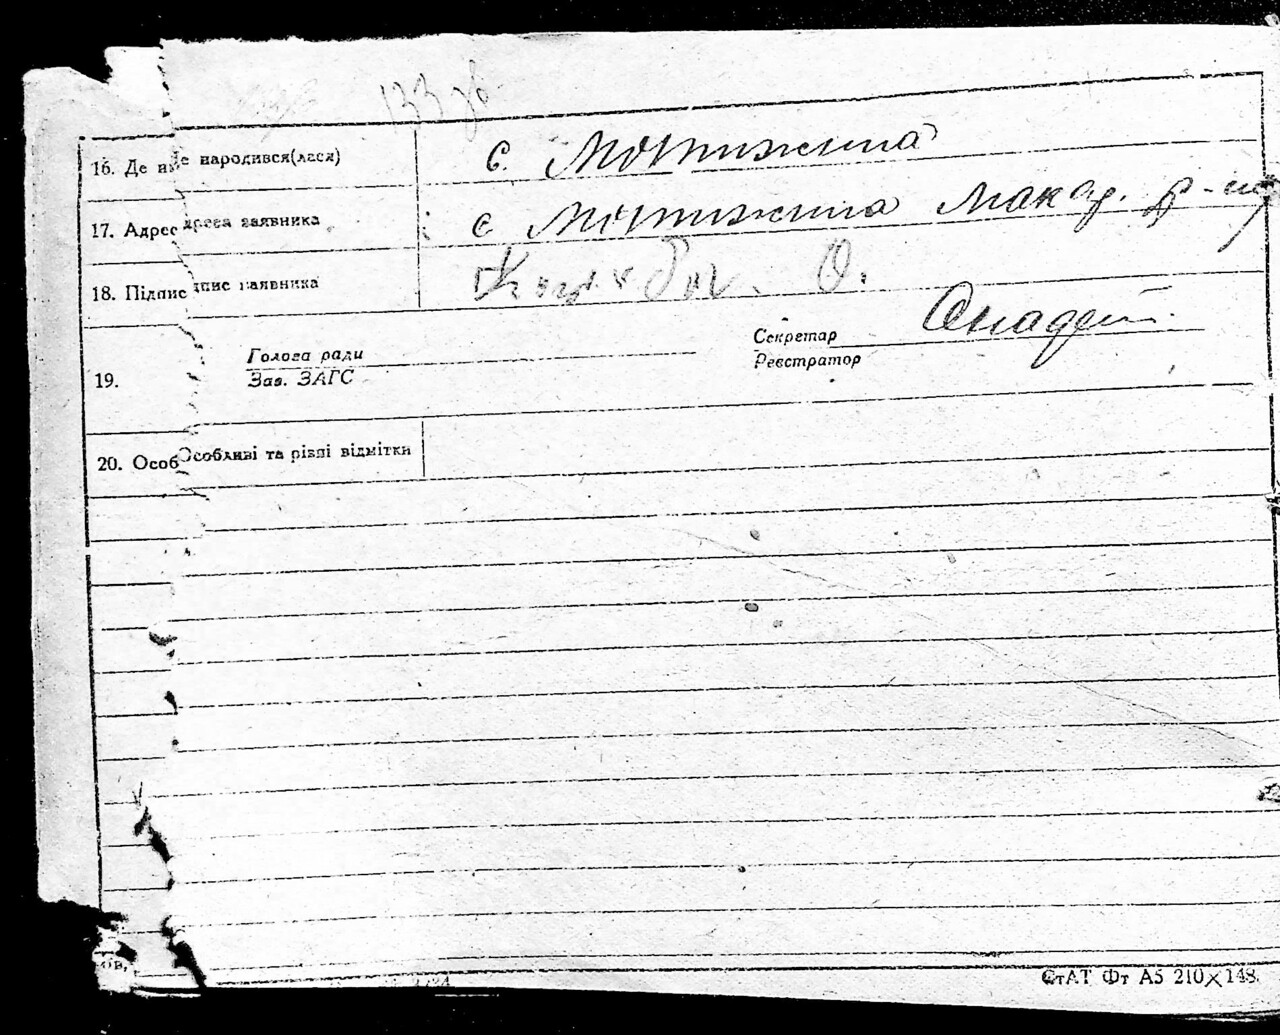 133 зв
16. Де народився(лася) с. Мотижина
17. Адреса заявника с Мотижина Макар. р-ну
18. Підпис заявника
Секретар
Голова ради
Реєстратор
19.
Зав. ЗАГС
20. Особливі та різні відмітки
СтАТ Фт А5 210×148.